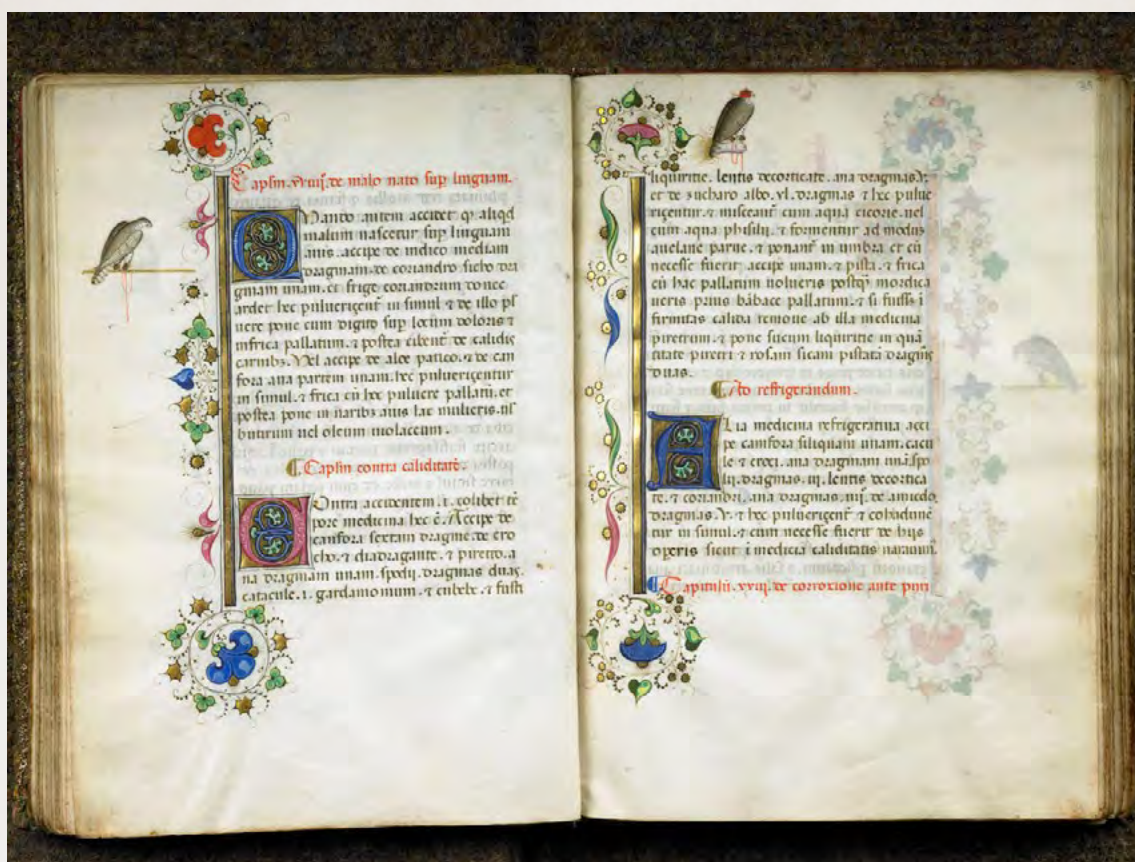 Caplm. xviij. de malo nato sup linguam.
Quando autem accidet q aliqd
malum nascetur sup linguam
auis. accipe de indico mediam
dragmam. de coriandro sicho dra
gmam unam. et frige coriandrum donec
ardet hec puluericent in simul. ⁊ de illo pl
uere pone cum digito sup locum doloris ⁊
infrica pallatum. ⁊ postea cibent de calidis
carnibz. Vel accipe de aloe patico. ⁊ de can
fora ana partem unam. hec puluericentur
in simul. ⁊ frica cū hoc puluere pallatū. et
postea pone in naribz auis lac mulieris.
butirum uel oleum uiolaceum.
Caplm contra caliditatē.
Contra accidentem. i. colibet tē
pore medicina hec ē. Accipe de
canfora sextam dragme. de cro
cho. ⁊ diadragante. ⁊ piretro. a
na dragmam unam. spodij. dragmas duas.
catacule. i. gardamomum. ⁊ cubebe. ⁊ fusti
liquiritie. lentis decorticate. ana dragmas. v.
et de zucharo albo. vl. dragmas ⁊ hec pulue
ricentur. ⁊ misceant cum aqua cicorie. uel
cum aqua phisilij. ⁊ formentur ad modus
auelane parue. ⁊ ponant in umbra et cū
necesse fuerit accipe unam. ⁊ pista. ⁊ frica
cū hac pallatum uolueris postq mordica
ueris prius bābace pallatum. ⁊ si fuiss i
firmitas calida remoue ab illa medicina
piretrum. ⁊ pone sucum liquiritie in quā
titate piretri ⁊ rosam sicam pistatā dragms
duas.
Ad reffrigerandum.
Alia medicina refrigeratiua acci
pe canfora siliquam unam. cacu
le ⁊ croci. ana dragmam unā. spo
lij. dragmas. iij. lentis decortica
te. ⁊ coriandri. ana dragmas. iiij. de amiedo
dragmas. v. ⁊ hec puluericent ⁊ cohadunē
tur in simul. ⁊ cum necesse fuerit de hijs
operis sicut i medicīa caliditatis narauim.
Capitulū. xviiij. de corroxione ante pnti